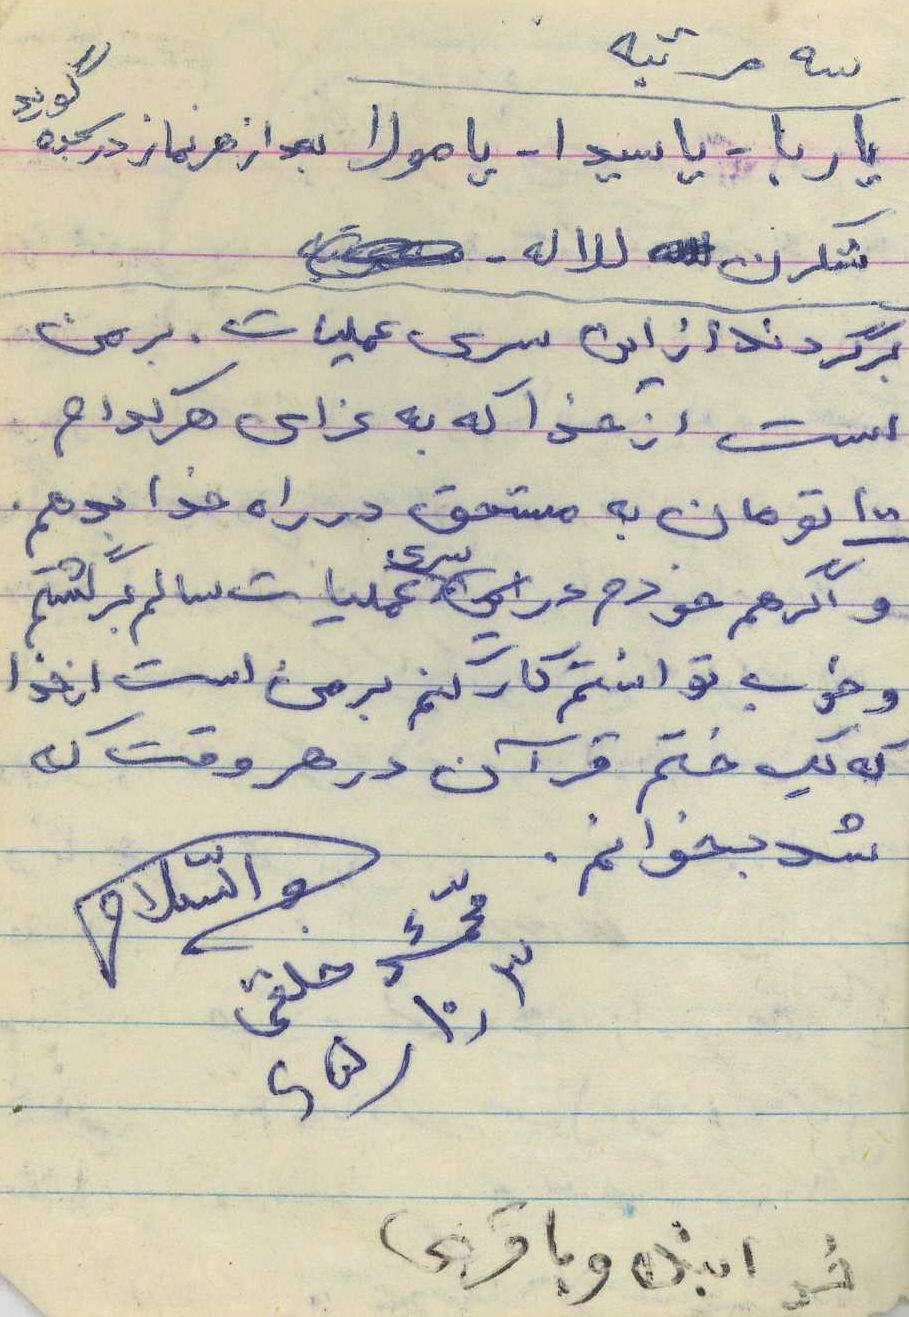 سه مرتبه
یا ربا - یا سیدا - یا مولا بعد از هر نماز در سجده گوید
شکرن لااله -
برگردند از این سری عملیات . بر من
است از خدا که به عزای هر کدام
تومان به مستحق در راه خدا بدهم .
و اگر هم خودم در این سری عملیات سالم برگشتم
و خوب توانستم کار کنم بر من است از خدا
که یک ختم قرآن در هر وقت که
شد بخوانم .
والسّلام
محمّد خلقی
۳ر۱۰ر۶۵